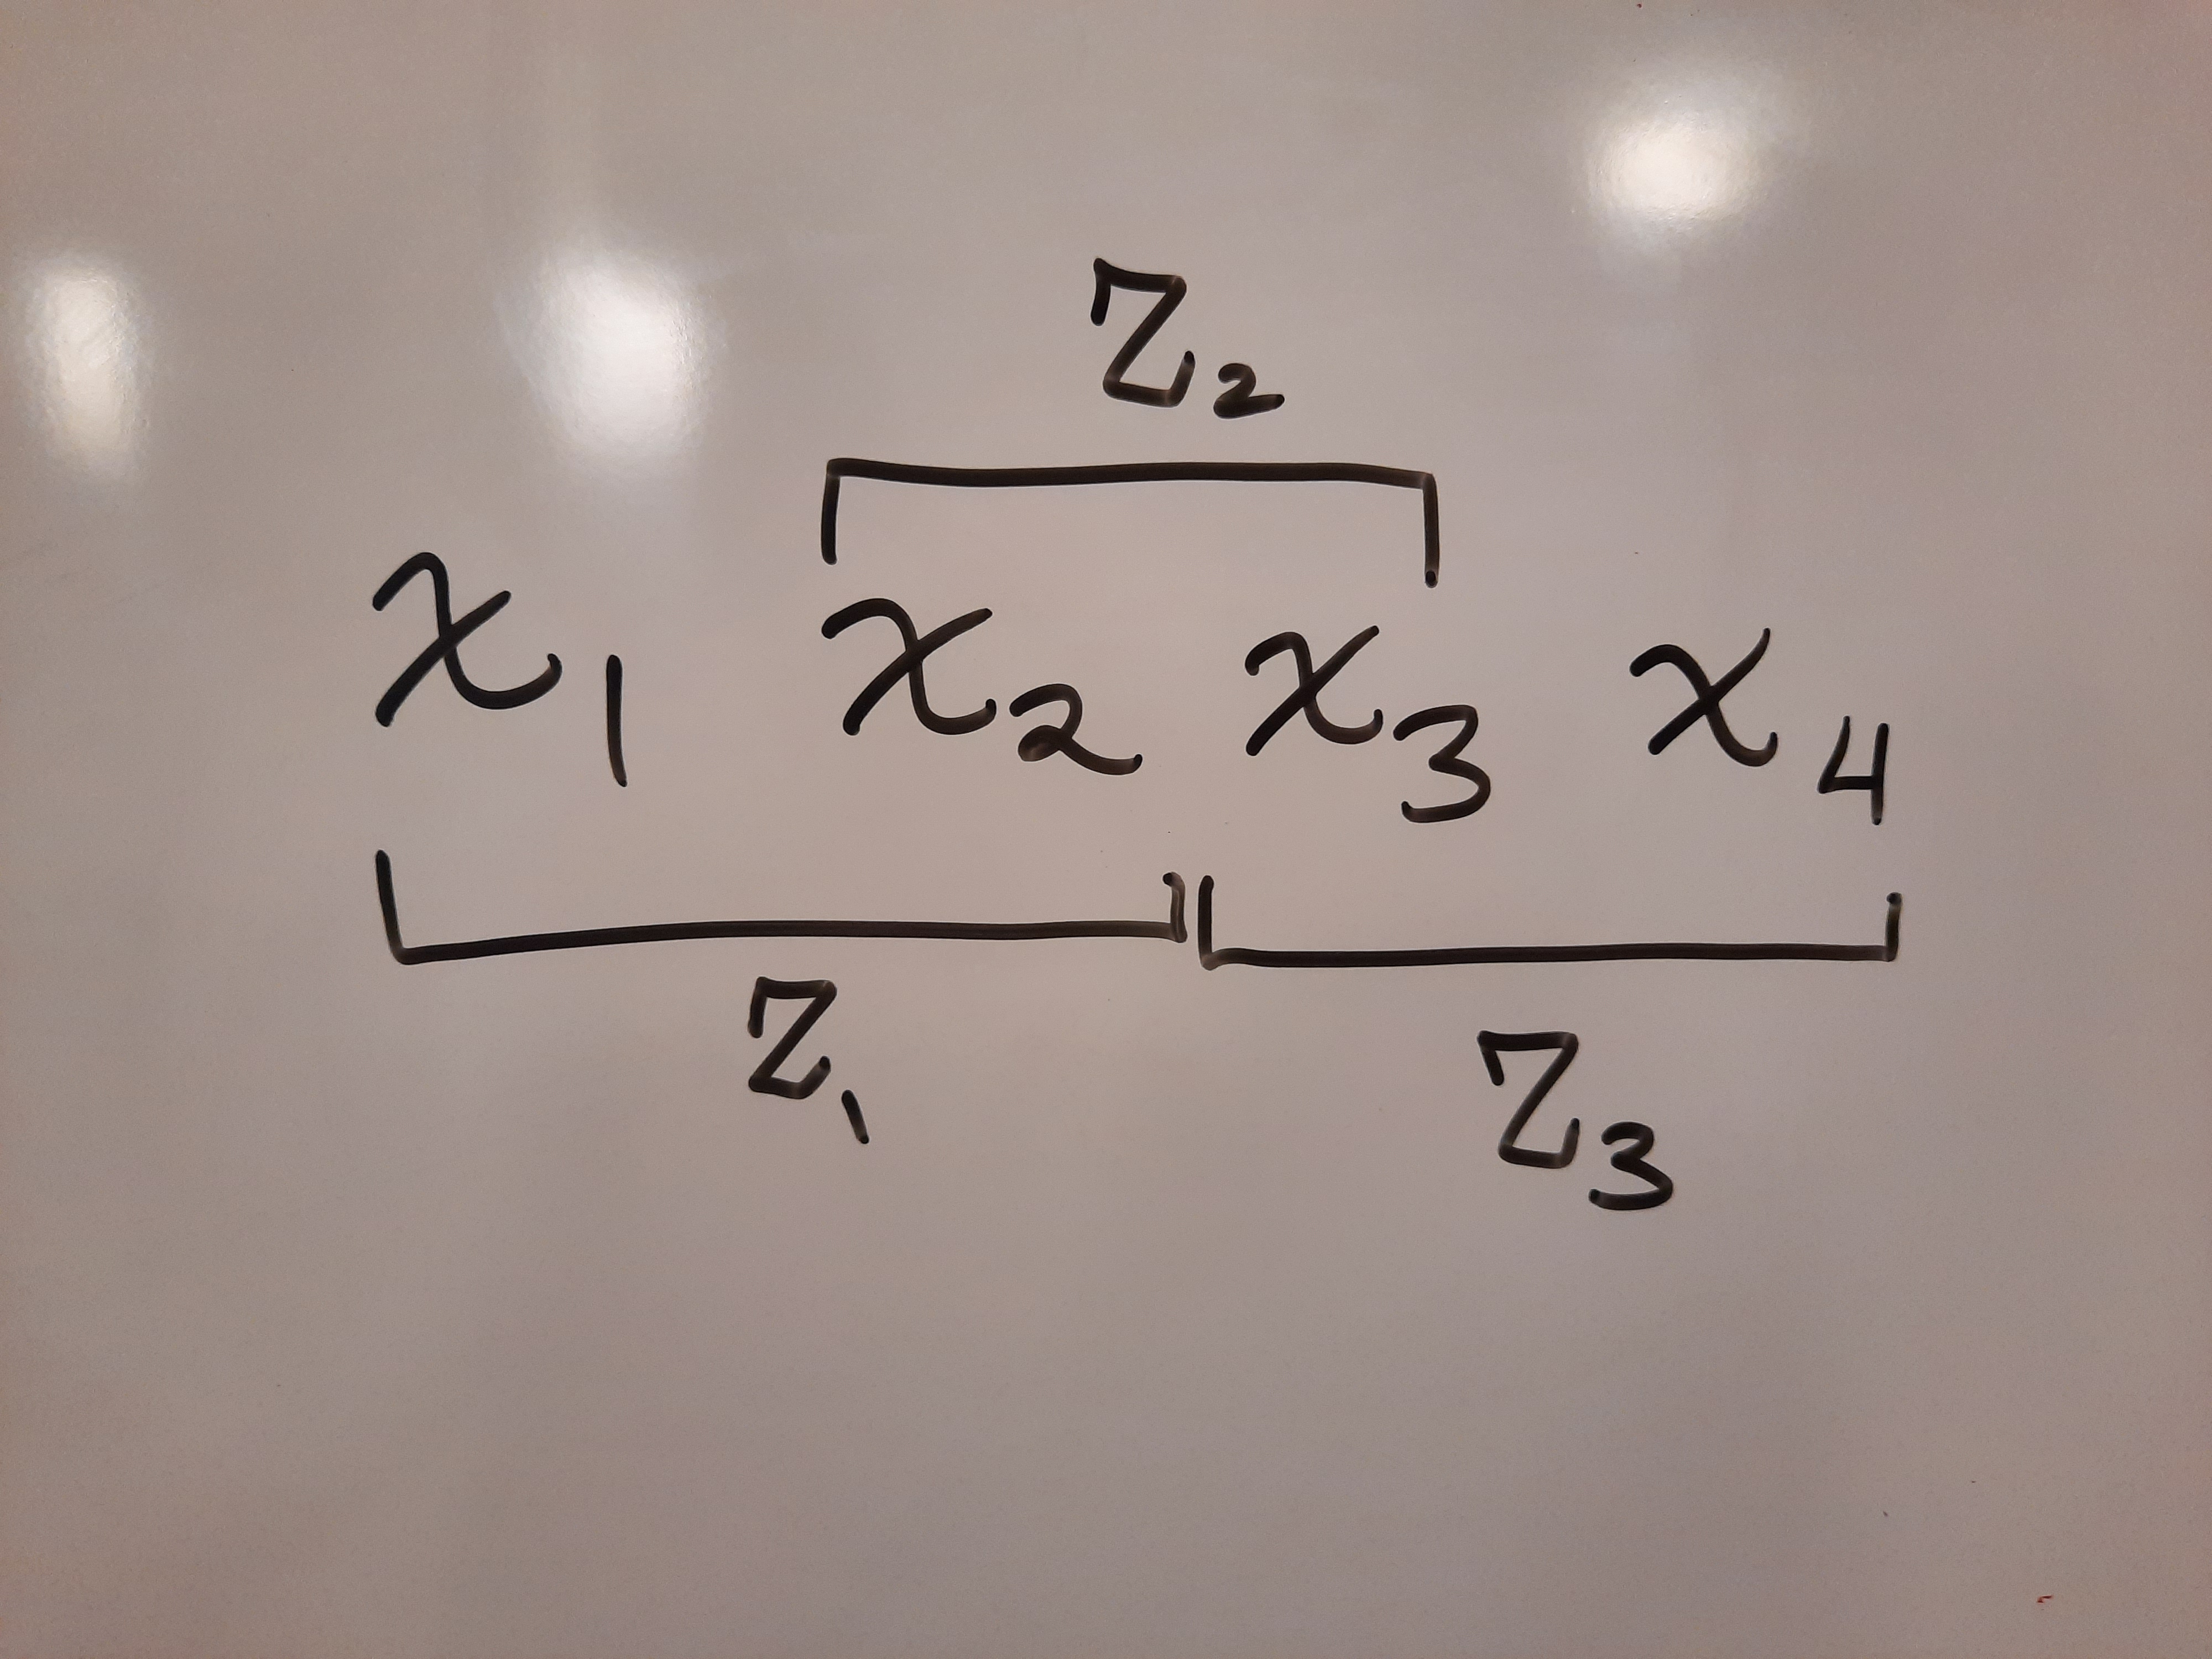 Z₂
x₁ x₂ x₃ x₄
Z₁ Z₃